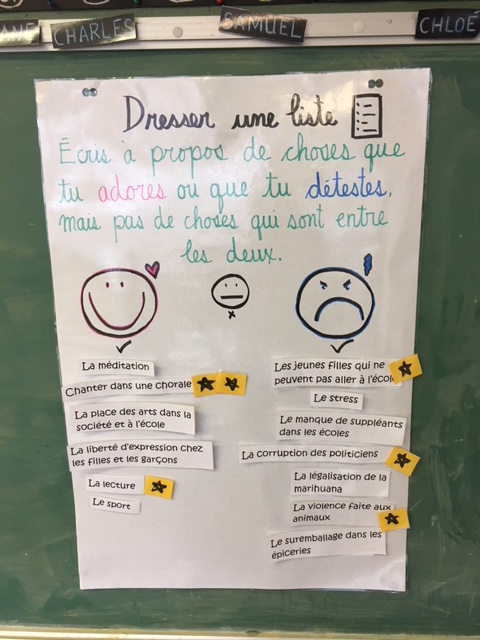 CHARLES
SAMUEL
CHLOÉ
Dresser une liste
Écris à propos de choses que
tu adores ou que tu détestes,
mais pas de choses qui sont entre
les deux.
La méditation
Chanter dans une chorale
La place des arts dans la
société et à l'école
La liberté d'expression chez
les filles et les garçons
La lecture
Le sport
Les jeunes filles qui ne
peuvent pas aller à l'école
Le stress
Le manque de suppléants
dans les écoles
La corruption des politiciens
La légalisation de la
marihuana
La violence faite aux
animaux
Le suremballage dans les
épiceries